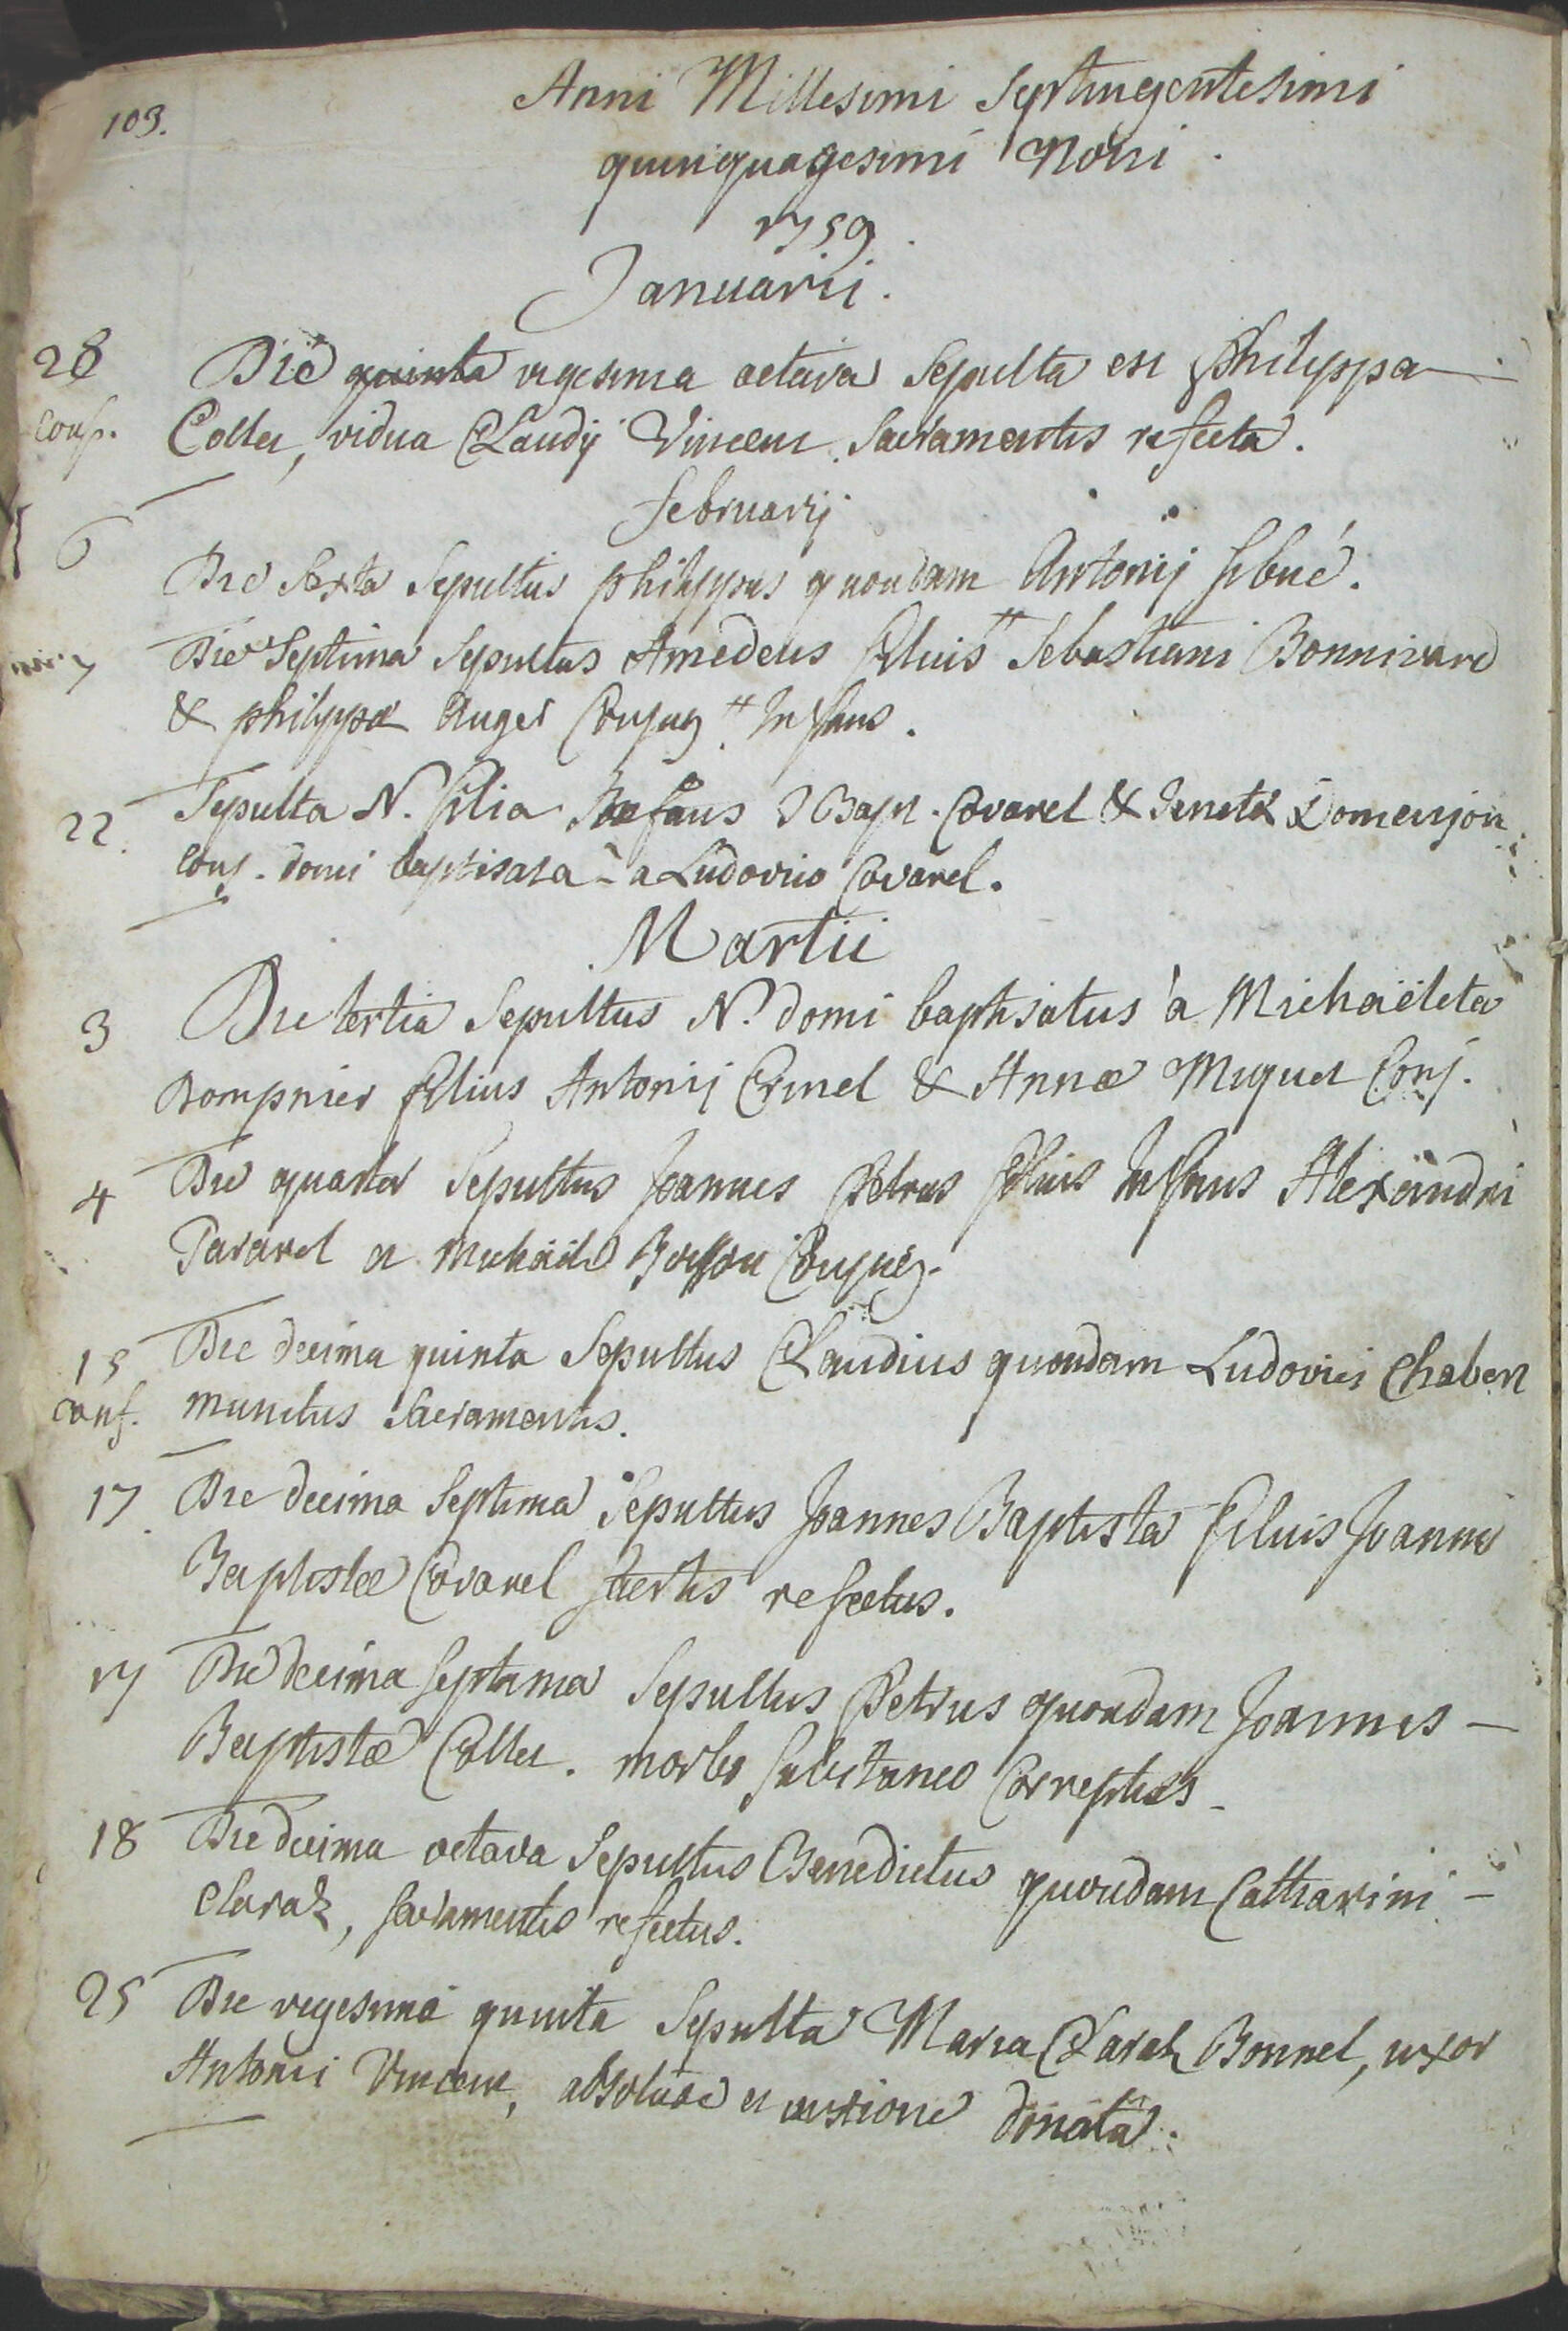 103.
Anni Millesimi Septingentesimi
quinquagesimi Noni.
1759.
Januarii.
28 Die quinta vigesima octava Sepulta est philippa
conf. Collet, vidua Claudij Vincent Sacramentis refecta.
februarij
6 Die Sexta Sepultus philippus quondam Antonij
7 Die Septima Sepultus Amedeus filius Sebastiani Bonnivard
& philippæ Auger Conjug. Infans.
22. Sepulta N. filia Infans J Bapt. Covarel & Domenjon
conj. domi baptisata à Ludovico Covarel.
Martii
3 Die tertia Sepultus N. domi baptisatus à Michaëleta
Dompnier filius Antonij & Annæ Miquet Conj.
4 Die quarta Sepultus Joannes Petrus filius Infans Alexandri
Pararel et Conjug.
15 Die decima quinta Sepultus Claudius quondam Ludovici Chabert
conf. munitus Sacramentis.
17. Die decima Septima Sepultus Joannes Baptista filius Joannis
Baptistæ Covarel refectus.
17 Die decima Septima Sepultus Petrus quondam Joannis —
Baptistæ Collet. morbo subitaneo Correptus
18 Die decima octava Sepultus Benedictus quondam Catharini —
Claraz, sacramentis refectus.
25 Die vigesima quinta Sepulta Maria Claraz Bonnel, uxor
Antonii Vincent, absolu et unctione donata.